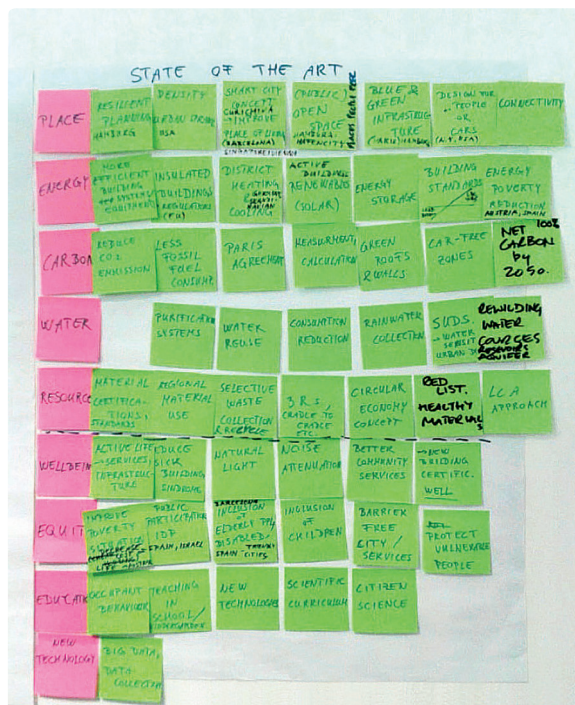 STATE OF THE ART
PLACE
RESILIENT
PLANNING
HAMBURG
DENSITY
URBAN
USA
SMART CITY
CONCEPT
CURICHIBA
→IMPROVE
PLACE OF LIVING
(BARCELONA)
SINGAPORE/VIENNA
(PUBLIC)
OPEN
SPACE
HAMBURG:
HAFENCITY
BLUE &
GREEN
INFRASTRUC
TURE
DESIGN FOR
→ PEOPLE
OR
CARS
CONNECTIVITY
ENERGY
MORE
EFFICIENT
BUILDING
SYSTEMS
EQUIPMENT
INSULATED
BUILDINGS
REGULATIONS
(EU)
DISTRICT
HEATING
COOLING
ACTIVE
BUILDINGS
RENEWABLES
(SOLAR)
ENERGY
STORAGE
BUILDING
STANDARDS
ENERGY
POVERTY
REDUCTION
AUSTRIA, SPAIN
CARBON
REDUCE
CO2
EMISSION
LESS
FOSSIL
FUEL
CONSUMP.
PARIS
AGREEMENT
MEASURMENT
CALCULATION
GREEN
ROOFS
&WALLS
CAR-FREE
ZONES
100%
NET
CARBON
by
2050.
WATER
PURIFICATION
SYSTEMS
WATER
REUSE
CONSUMPTION
REDUCTION
RAINWATER
COLLECTION
SUDS.
→WATER
SENSIT
URBAN D
REWILDING
WATER
COURSES
RESERVOIRS
AQUIFER
RESOURCE
MATERIAL
CERTIFICA-
TIONS,
STANDARDS
REGIONAL
MATERIAL
USE
SELECTIVE
WASTE
COLLECTION
& RECYCLE
3 Rs,
CRADLE TO
CRADLE
ETC.
CIRCULAR
ECONOMY
CONCEPT
RED
LIST.
HEALTHY
MATERIAL
S
LCA
APPROACH
WELLBEIN
ACTIVE LIFE
→SERVICES,
INFRASTRUC-
TURE
EDUCE
SICK
BUILDING
SINDROME
NATURAL
LIGHT
NOISE
ATTENUATION
BETTER
COMMUNITY
SERVICES
→NEW
BUILDING
CERTIFIC.
WELL
EQUIT
IMPROVE
POVERTY
SITUATION
PUBLIC
PARTICIPATION
IDF
SPAIN, ISRAEL
BARCELONA
INCLUSION
of
ELDERLY PPL,
DISABLED,
SPAIN - CITIES
INCLUSION
OF
CHILDREN
BARRIER
FREE
CITY/
SERVICES
PROTECT
VULNERABLE
PEOPLE
EDUCATIO
OCCUPANT
BEHAVIOUR
TEACHING
IN
SCHOOL/
NEW
TECHNOLOGIES
SCIENTIFIC
CURRICULUM
CITIZEN
SCIENCE
NEW
TECHNOLOGY
BIG DATA,
DATA-
COLLECTION